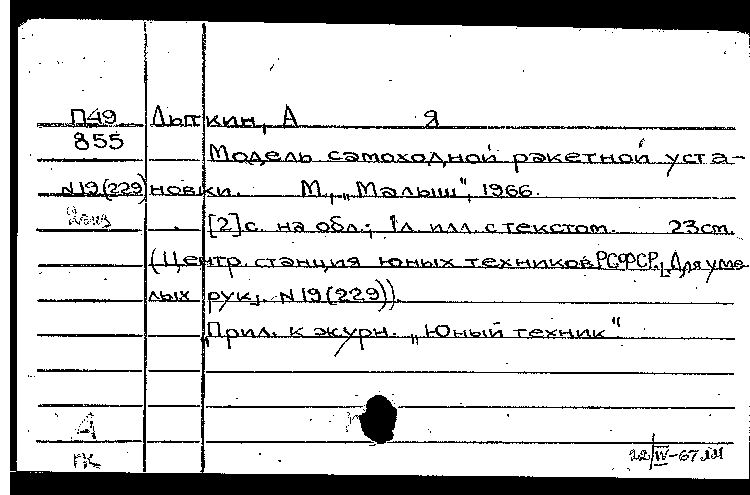 П49 Лыткин, А Я
855
Модель самоходной ракетной уста-
N19(229) новки. М., „Малыш", 1966.
2экз [2]с. на обл.; 1л. илл. с текстом. 23см.
(Центр. станция юных техников РСФСР. Для уме
лых рук, N19(229)).
Прил. к журн. „Юный техник"
Д
ПК 22/IV-67